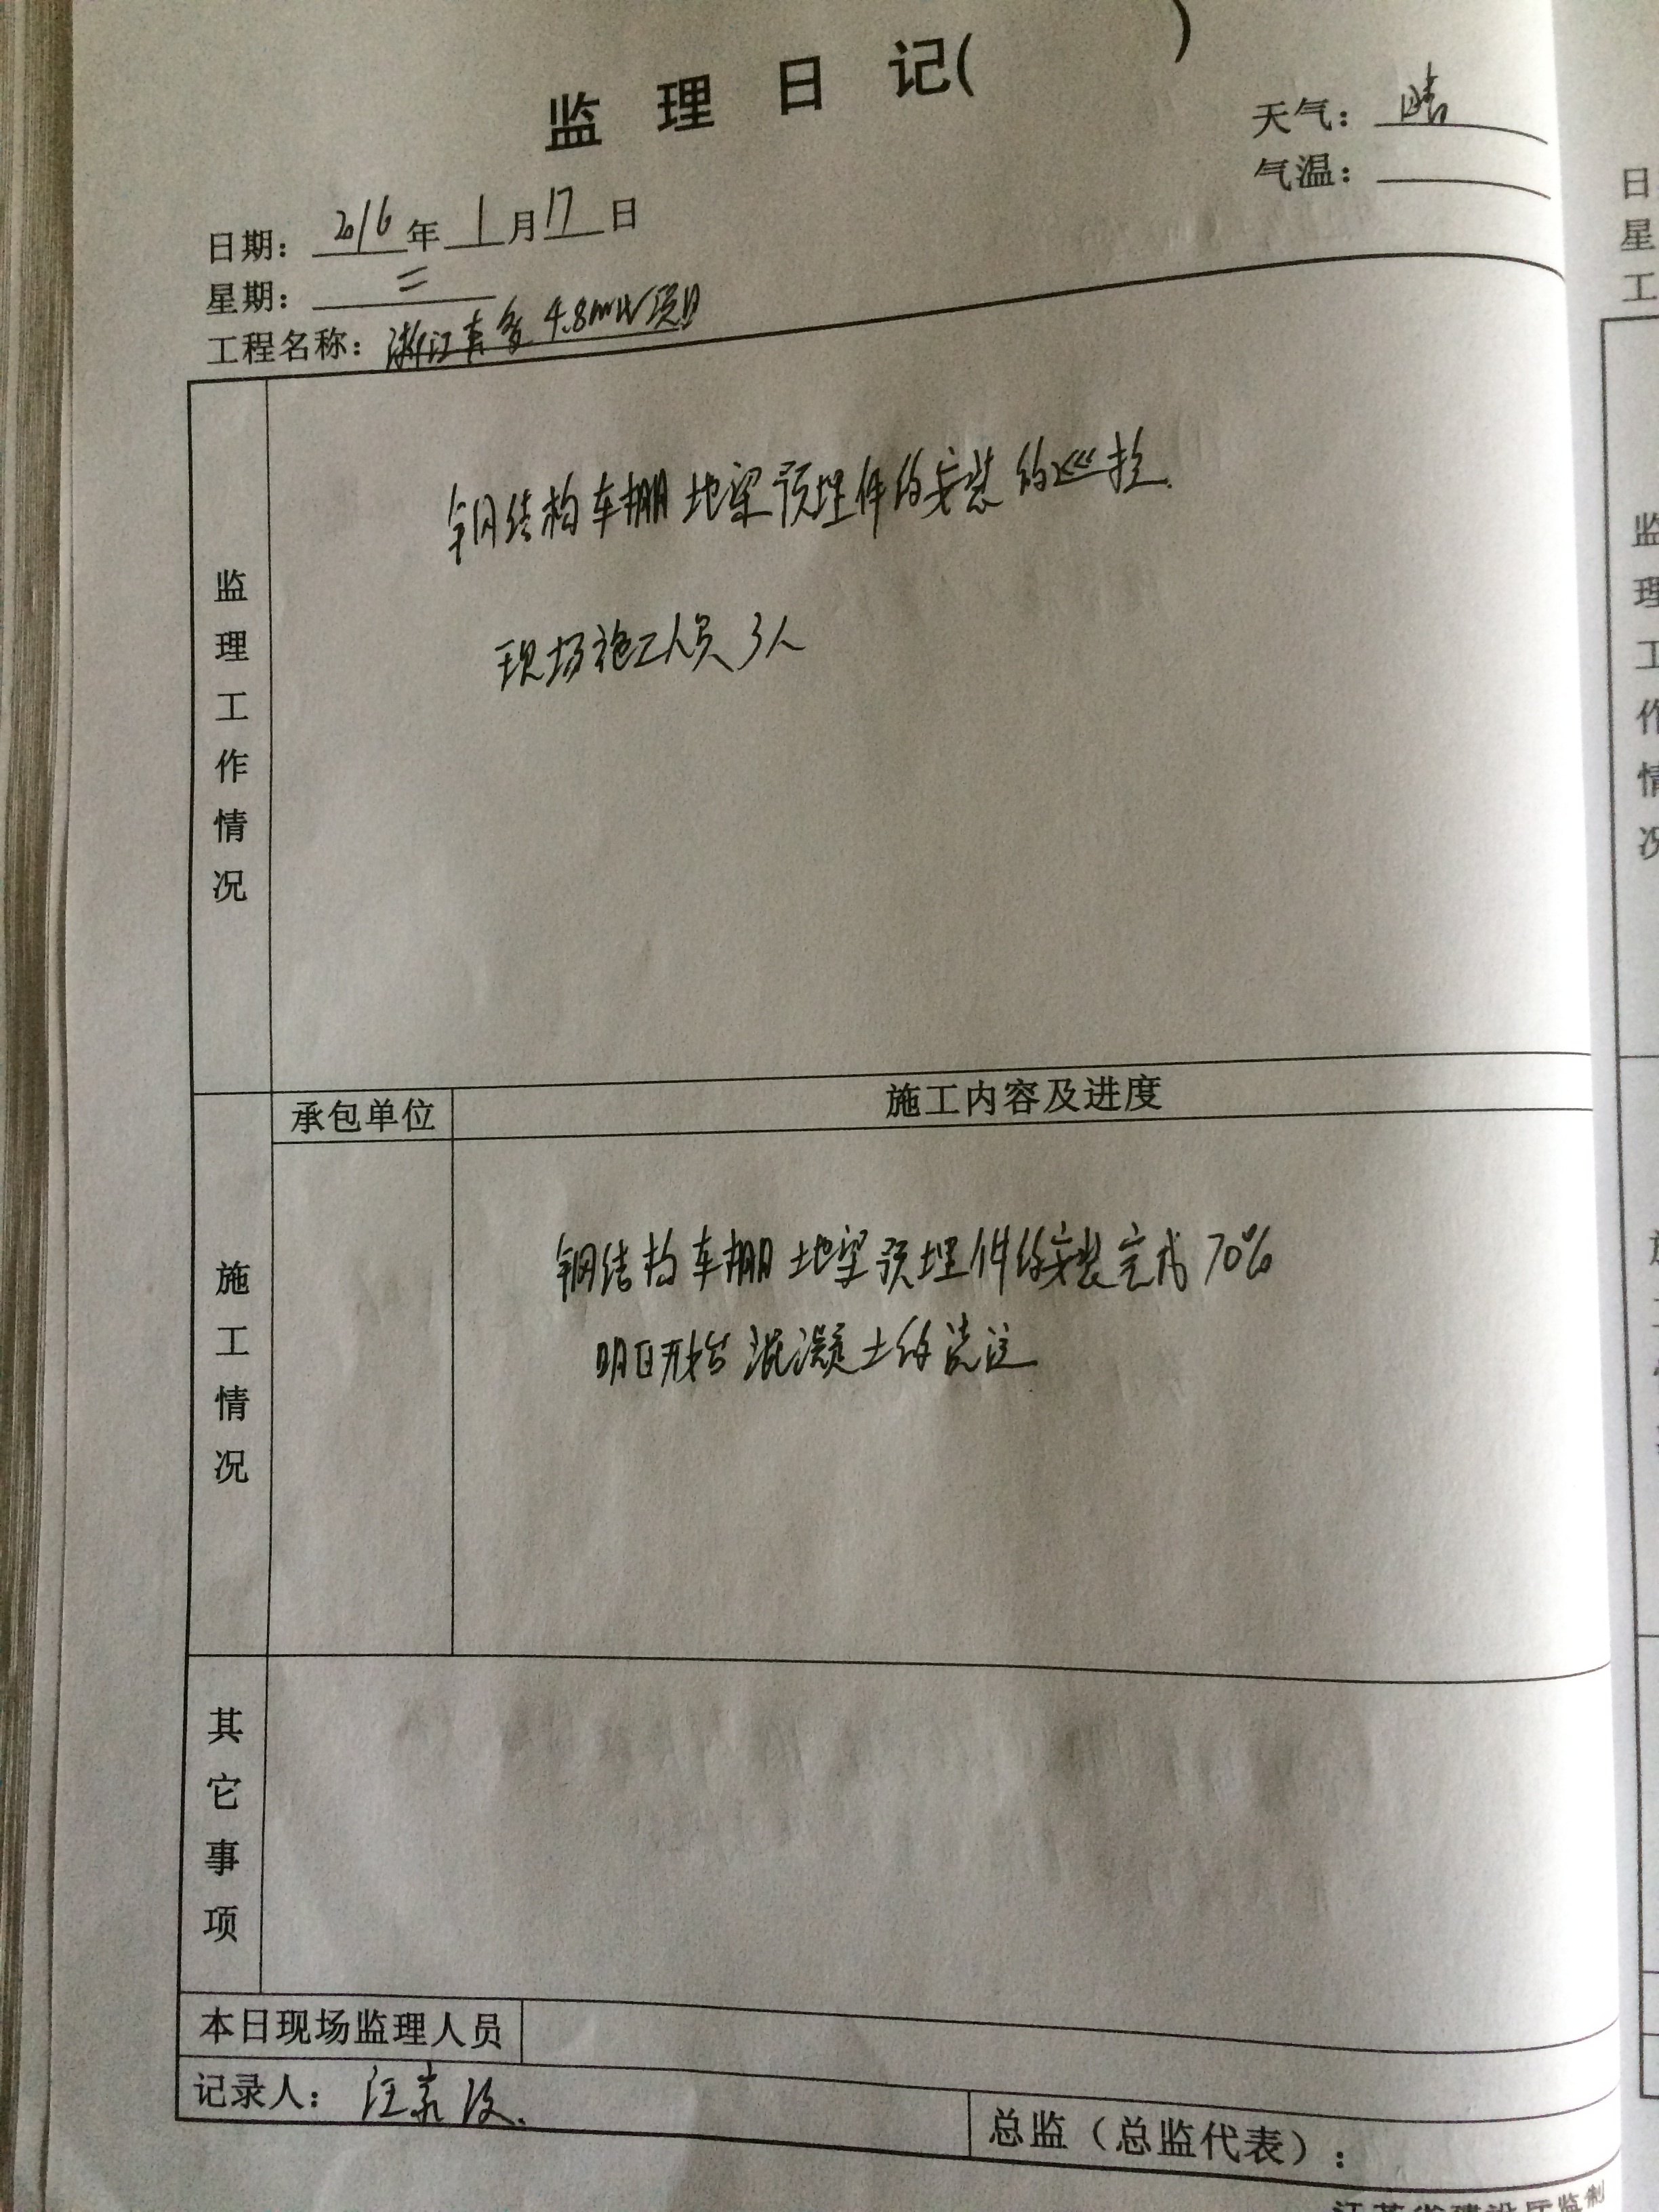 监理日记( )
天气：晴
气温：
日期：2016年1月17日
星期：二
工程名称：浙江 4.8MW项目
监理工作情况
钢结构车棚地梁预埋件的安装的巡捡.
现场施工人员3人
施工情况
承包单位 施工内容及进度
钢结构车棚地梁预埋件的安装完成70%
明日开始混凝土的浇注
其它事项
本日现场监理人员
记录人：汪
总监（总监代表）：
江苏省建设厅监制
日
星
工
监
理
工
作
情
况